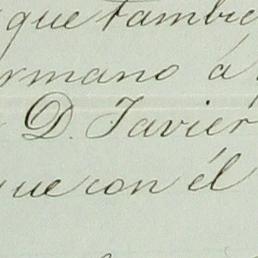 que tambie
ermano á
D. Javiér
que con él